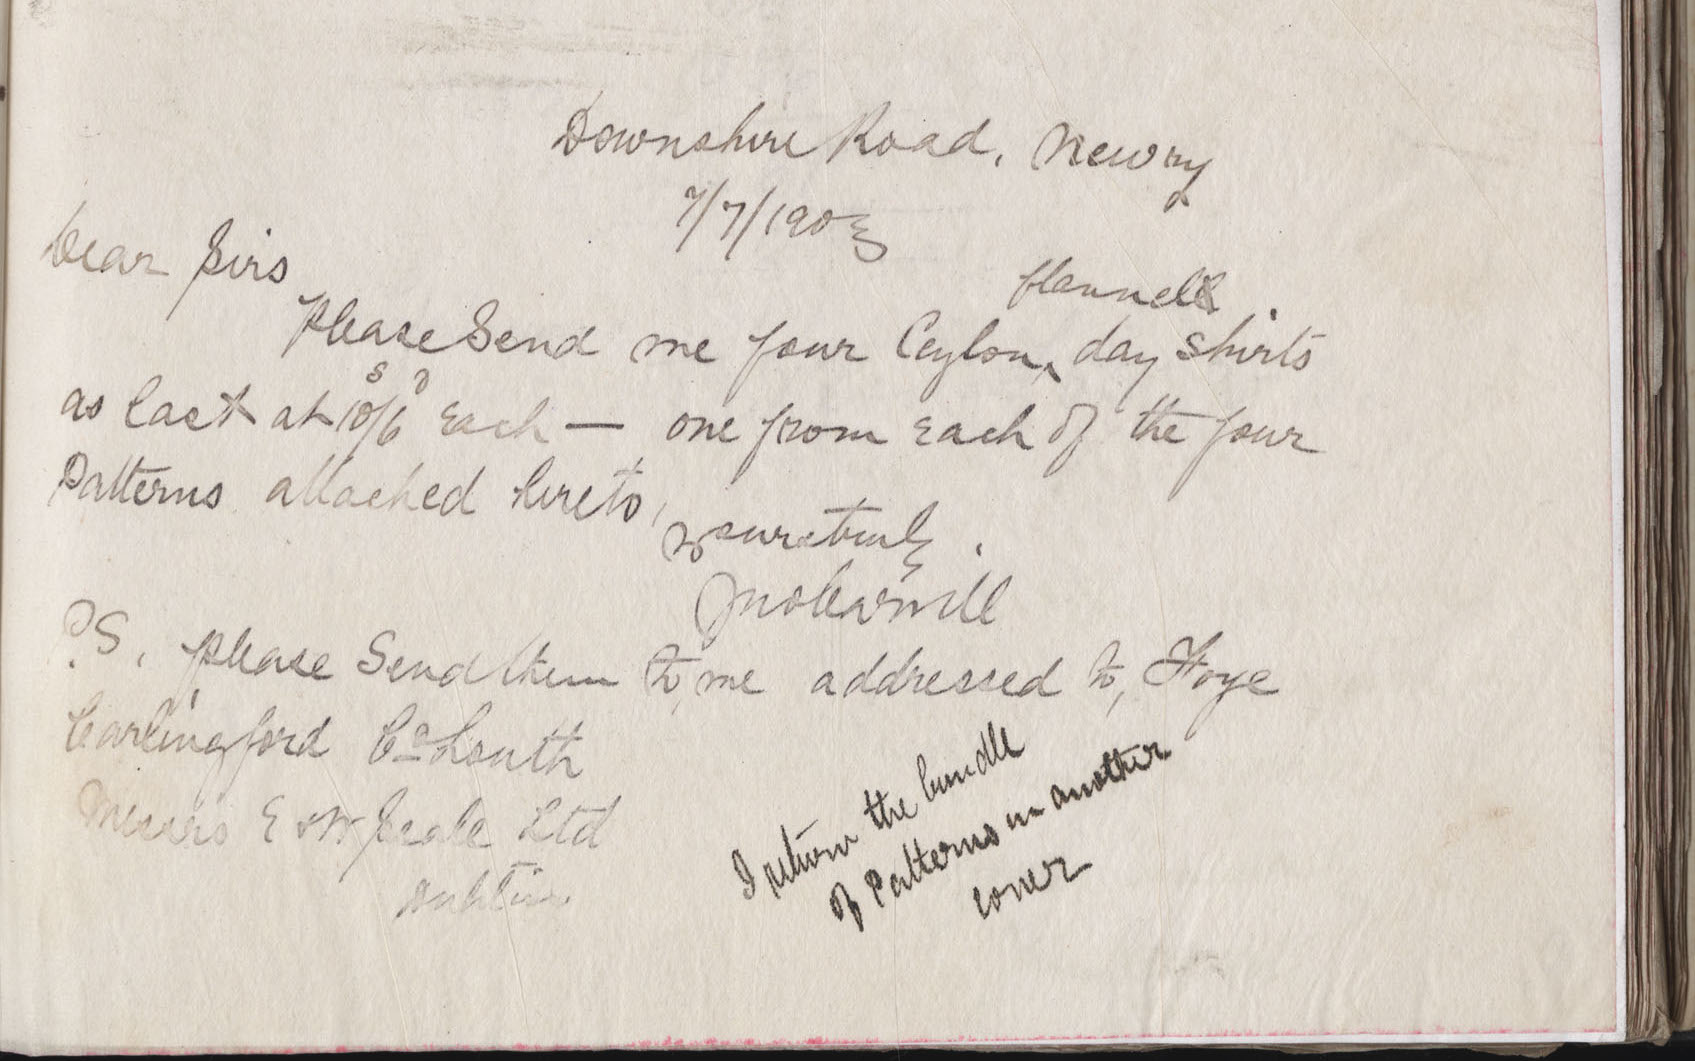 Downshire Road, Newry
7/7/1903
Dear Sirs
Please Send me four Ceylon flannel day shirts
as last at 10s/6d Each — one from Each of the four
Patterns attached hereto,
yours truly.
Jno
P.S. please Send them to me addressed to,
Carlingford Co Louth
Messrs E & W Seale Ltd
Dublin
I return the bundle
of Patterns in another
cover